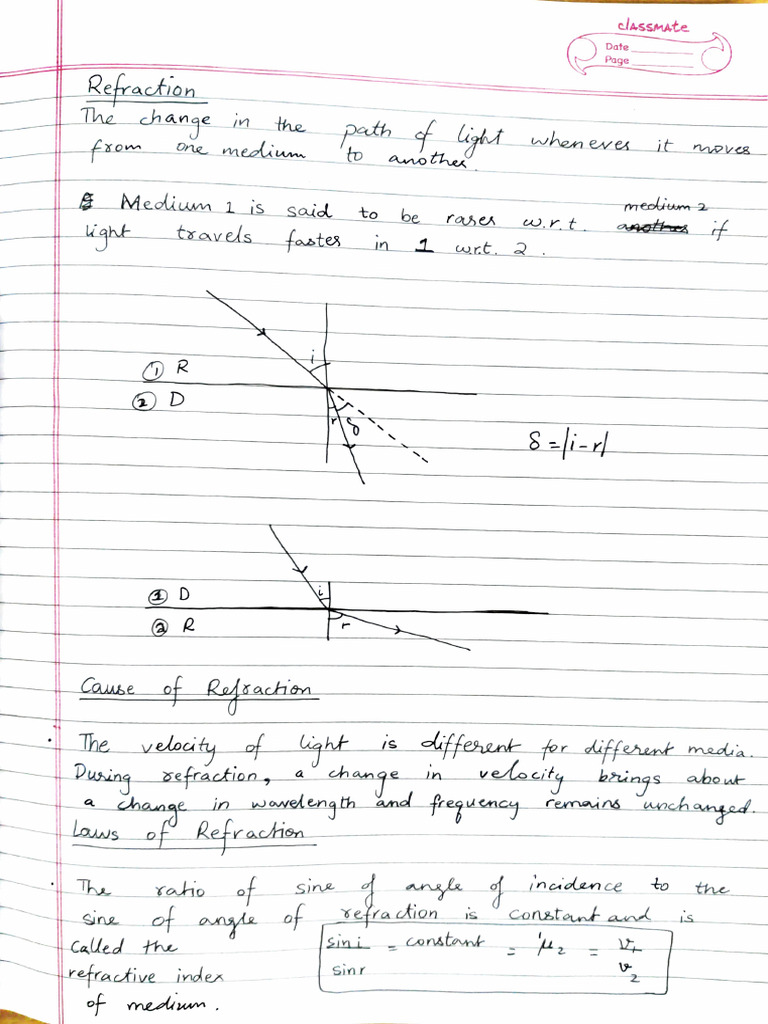 classmate
Date
Page
Refraction
The change in the path of light whenever it moves
from one medium to another.
Medium 1 is said to be rarer w.r.t. medium 2 if
light travels faster in 1 w.r.t. 2.
i
① R
② D
r δ
δ = |i-r|
① D
i
② R
r
Cause of Refraction
· The velocity of light is different for different media.
During refraction, a change in velocity brings about
a change in wavelength and frequency remains unchanged.
Laws of Refraction
· The ratio of sine of angle of incidence to the
sine of angle of refraction is constant and is
called the
refractive index
of medium.
sin i / sin r = constant = ¹μ₂ = v₁ / v₂